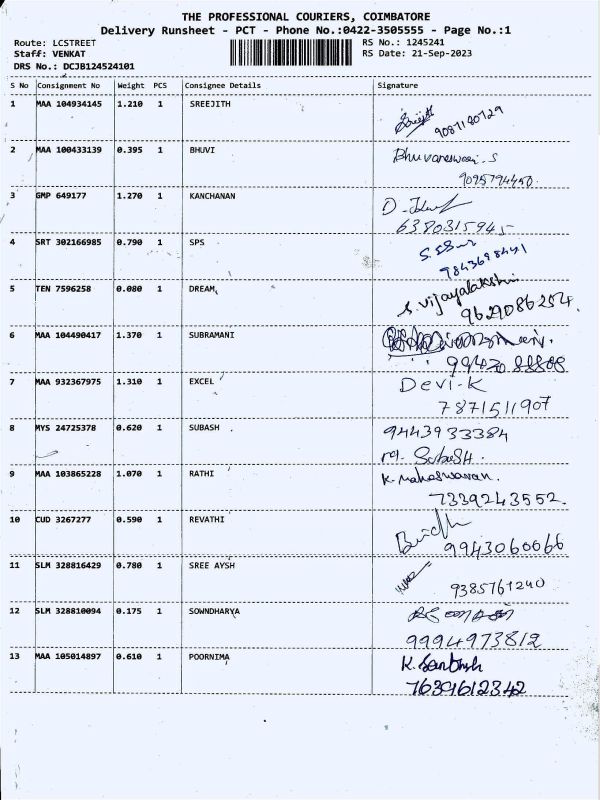 THE PROFESSIONAL COURIERS, COIMBATORE
Delivery Runsheet - PCT - Phone No.:0422-3505555 - Page No.:1
Route: LCSTREET RS No.: 1245241
Staff: VENKAT RS Date: 21-Sep-2023
DRS No.: DCJB124524101
S No Consignment No Weight PCS Consignee Details Signature
1 MAA 104934145 1.210 1 SREEJITH
9087180729
2 MAA 100433139 0.395 1 BHUVI Bhuvaneswari. S
9095794450.
3 GMP 649177 1.270 1 KANCHANAN
6380315945
4 SRT 302166985 0.790 1 SPS
9843698441
5 TEN 7596258 0.080 1 DREAM S. Vijayalakshmi
9629086254.
6 MAA 104490417 1.370 1 SUBRAMANI
9942088808
7 MAA 932367975 1.310 1 EXCEL Devi-K
7871511907
8 MYS 24725378 0.620 1 SUBASH 9443933384
SubaSH.
9 MAA 103865228 1.070 1 RATHI K. maheswaran.
7339243552.
10 CUD 3267277 0.590 1 REVATHI
9943060066
11 SLM 328816429 0.780 1 SREE AYSH
9385761240
12 SLM 328810094 0.175 1 SOWNDHARYA
9994973812
13 MAA 105014897 0.610 1 POORNIMA K. Santhosh
76391612342